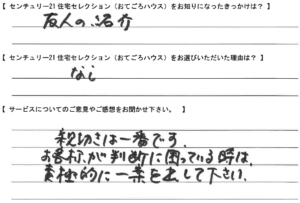 【 センチュリー21 住宅セレクション（おてごろハウス）をお知りになったきっかけは？ 】
友人の紹介
【 センチュリー21 住宅セレクション（おてごろハウス）をお選びいただいた理由は？ 】
なし
【 サービスについてのご意見やご感想をお聞かせ下さい。 】
親切さは一番です。
お客様が判断に困っている時は、
積極的に一案を出して下さい。